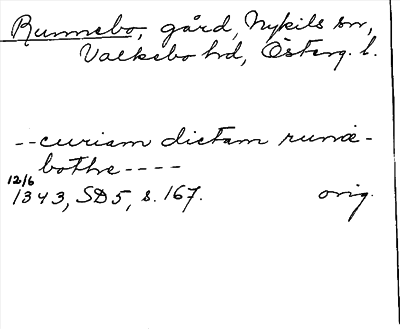 Runnebo, gård, Nykils sn,
Valkebo hd, Österg. l.
-- curiam dictam runæ-
bothe ----
12/6
1343, SD5, s. 167. orig.